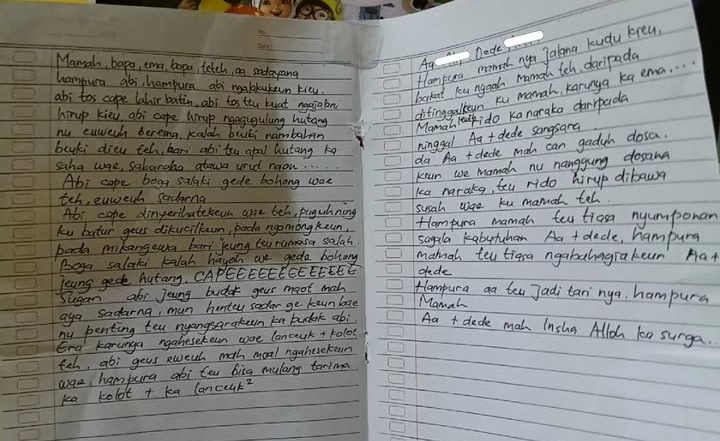 Mamah, bapa, ema, bapa, teteh, aa sadayana
hampura abi, hampura abi ngalakukeun kieu.
abi tos cape lahir batin, abi tos teu kuat ngajalni
hirup kieu, abi cape hirup nggugulung hutang
nu euweuh bereśna, kalah beuki nambahan
beuki dieu teh, bari abi teu apal hutang ka
saha wae, sabaraha atawa urut naon.....
Abi cape boga salaki gede bohong wae
teh, euweuh sadarna
Abi cape dinyerihatekeun wae teh, puguh ning
ku batur geus dikucilkeun, pada ngomongkeun,
pada mikangewa bari jeung teu rumasa salah.
Boga salaki kalah hayoh we gede bohong
jeung gede hutang, CAPEEEEEEEEEEEE
Sugan abi jeung budak geus maot mah
aya sadarna, mun henteu sadar ge keun bae
nu penting teu nyangsarakeun ka budak abi.
Era karunga ngahesekeun wae lanceuk + kolot
teh, abi geus euweuh mah moal ngahesekeun
wae, hampura abi teu bisa mulang tarima
ka kolot + ka lanceuk²
Aa Dede
Hampura mamah nya jalana kudu kieu,
bakat ku nyaah mamah teh, daripada
ditinggalkeun ku mamah, karunya ka ema....
Mamah leuwih rido ka naraka daripada
ninggal Aa + dede sangsara
da Aa + dede mah can gaduh dosa.
keun we mamah nu nanggung dosana
ka naraka, teu rido hirup dibawa
susah wae ku mamah teh.
Hampura mamah teu tiasa nyumponan
sagala kabutuhan Aa + dede, hampura
mamah teu tiasa ngabahagiakeun Aa +
dede
Hampura aa teu jadi tari nya. hampura
Mamah
Aa + dede mah Insha Alloh ka surga.